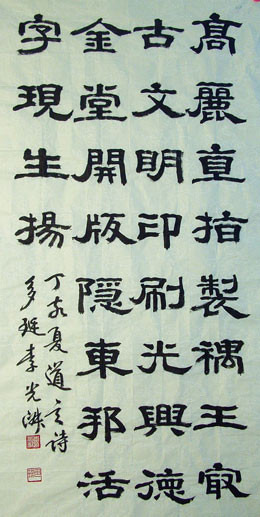 髙麗直指製禑王冣
古文明印刷光興德
金堂開版隱東邦活
字現生揚
丁亥夏道詩
李光